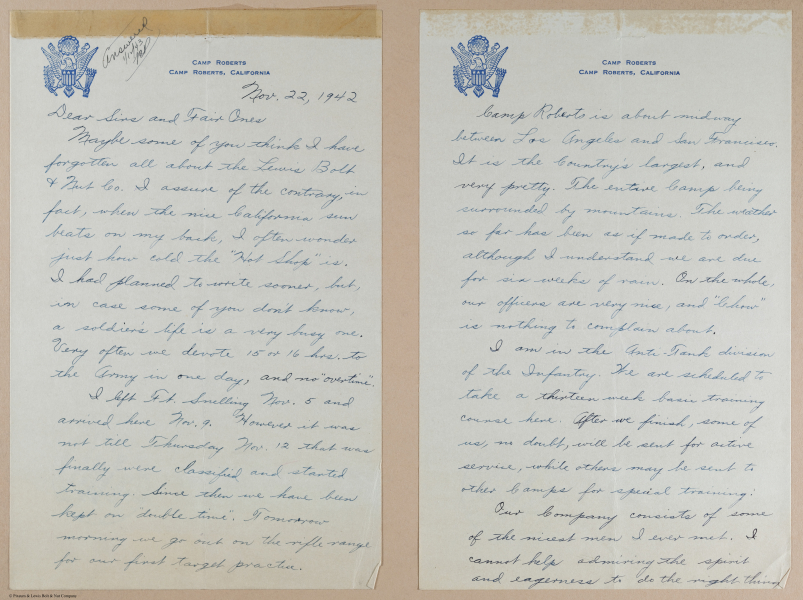 Answered
CAMP ROBERTS
CAMP ROBERTS, CALIFORNIA
Nov. 22, 1942
Dear Sirs and Fair Ones
Maybe some of you think I have
forgotten all about the Lewis Bolt
& Nut Co. I assure of the contrary, in
fact, when the nice California sun
beats on my back, I often wonder
just how cold the "Hot Shop" is.
I had planned to write sooner, but,
in case some of you don't know,
a soldier's life is a very busy one.
Very often we devote 15 or 16 hrs. to
the Army in one day, and no "overtime".
I left Ft. Snelling Nov. 5 and
arrived here Nov. 9. However it was
not till Thursday Nov. 12 that was
finally were classified and started
training. Since then we have been
kept on "double time". Tomorrow
morning we go out on the rifle range
for our first target practice.
© Pioneer & Lewis Bolt & Nut Company
CAMP ROBERTS
CAMP ROBERTS, CALIFORNIA
Camp Roberts is about midway
between Los Angeles and San Francisco.
It is the Country's largest, and
very pretty. The entire Camp being
surrounded by mountains. The weather
so far has been as if made to order,
although I understand we are due
for six weeks of rain. On the whole,
our officers are very nice, and "Chow"
is nothing to complain about.
I am in the Anti-Tank division
of the Infantry. We are scheduled to
take a thirteen week basic training
course here. After we finish, some of
us, no doubt, will be sent for active
service, while others may be sent to
other Camps for special training.
Our Company consists of some
of the nicest men I ever met. I
cannot help admiring the spirit
and eagerness to do the right thing